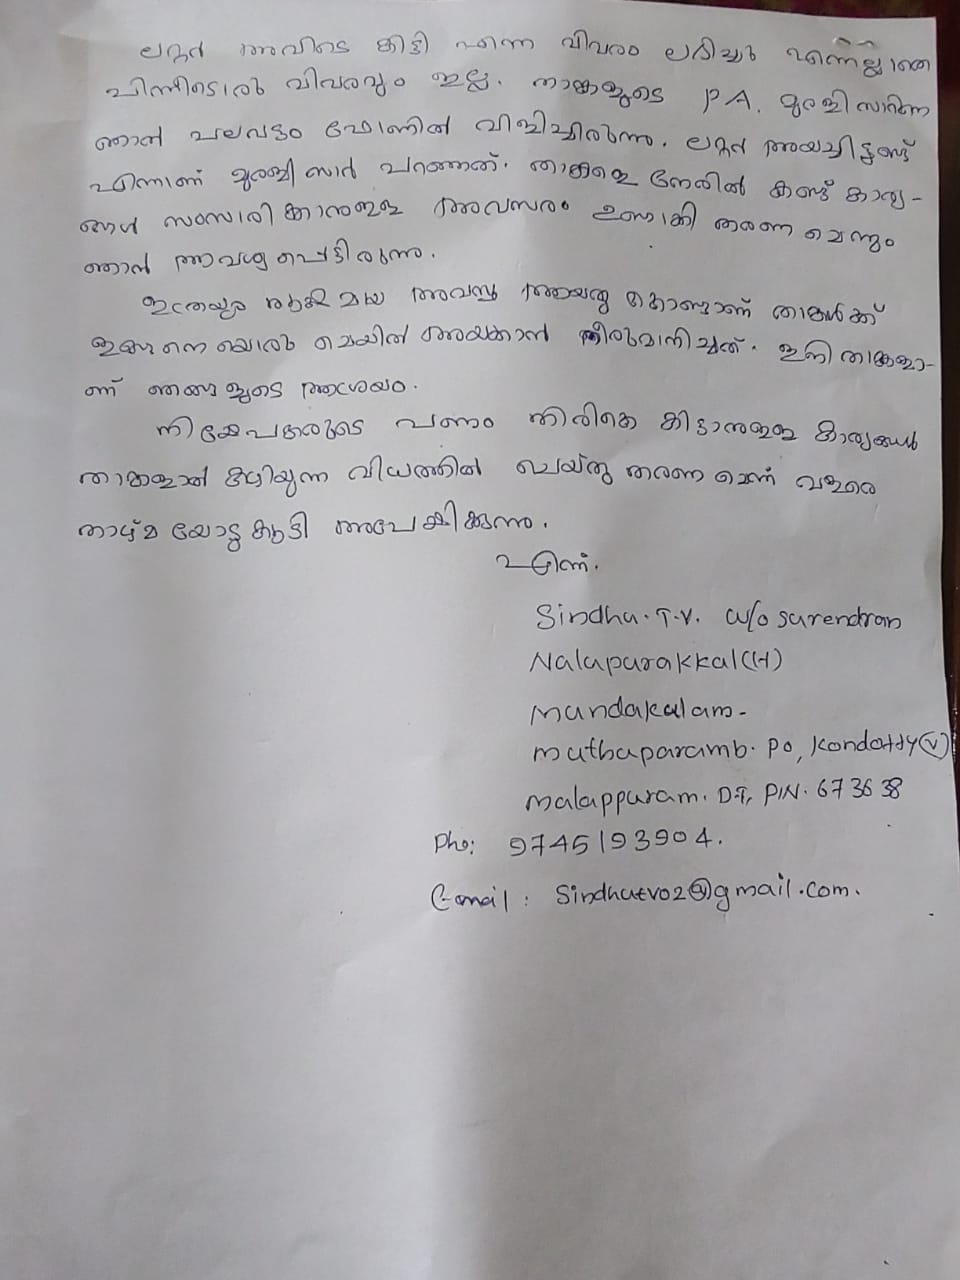 ലറ്റർ അവിടെ കിട്ടി എന്ന വിവരം ലഭിച്ചു എന്നല്ലാതെ
പിന്നീടൊരു വിവരവും ഇല്ല. താങ്കളുടെ P.A. മുരളിസാറിനെ
ഞാൻ പലവട്ടം ഫോണിൽ വിളിച്ചിരുന്നു. ലറ്റർ അയച്ചിട്ടുണ്ട്
എന്നാണ് മുരളി സാർ പറഞ്ഞത്. താങ്കളെ നേരിൽ കണ്ട് കാര്യ-
ങ്ങൾ സംസാരിക്കാനുള്ള അവസരം ഉണ്ടാക്കി തരണമെന്നും
ഞാൻ ആവശ്യപ്പെട്ടിരുന്നു.
ഇത്രയും രൂക്ഷമായ അവസ്ഥ ആയതു കൊണ്ടാണ് താങ്കൾക്ക്
ഇങ്ങനെയൊരു മെയിൽ അയക്കാൻ തീരുമാനിച്ചത്. ഇനി താങ്കളാ-
ണ് ഞങ്ങളുടെ ആശ്രയം.
നിക്ഷേപകരുടെ പണം തിരികെ കിട്ടാനുള്ള കാര്യങ്ങൾ
താങ്കളാൽ കഴിയുന്ന വിധത്തിൽ ചെയ്തു തരണമെന്ന് വളരെ
താഴ്മയോടുകൂടി അപേക്ഷിക്കുന്നു.
എന്ന്.
Sindhu.T.V. W/o Surendran
Nalupurakkal(H)
Mundakulam-
Muthuparamb. PO, Kondotty(V)
Malappuram. DT, PIN. 673638
Pho: 9745193904.
E-mail : Sindhutv02@gmail.com.